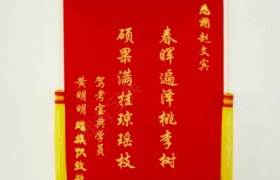 感谢赵文宾
春晖遍泽桃李树
硕果满挂琼瑶枝
驾考宝典学员
黄明明